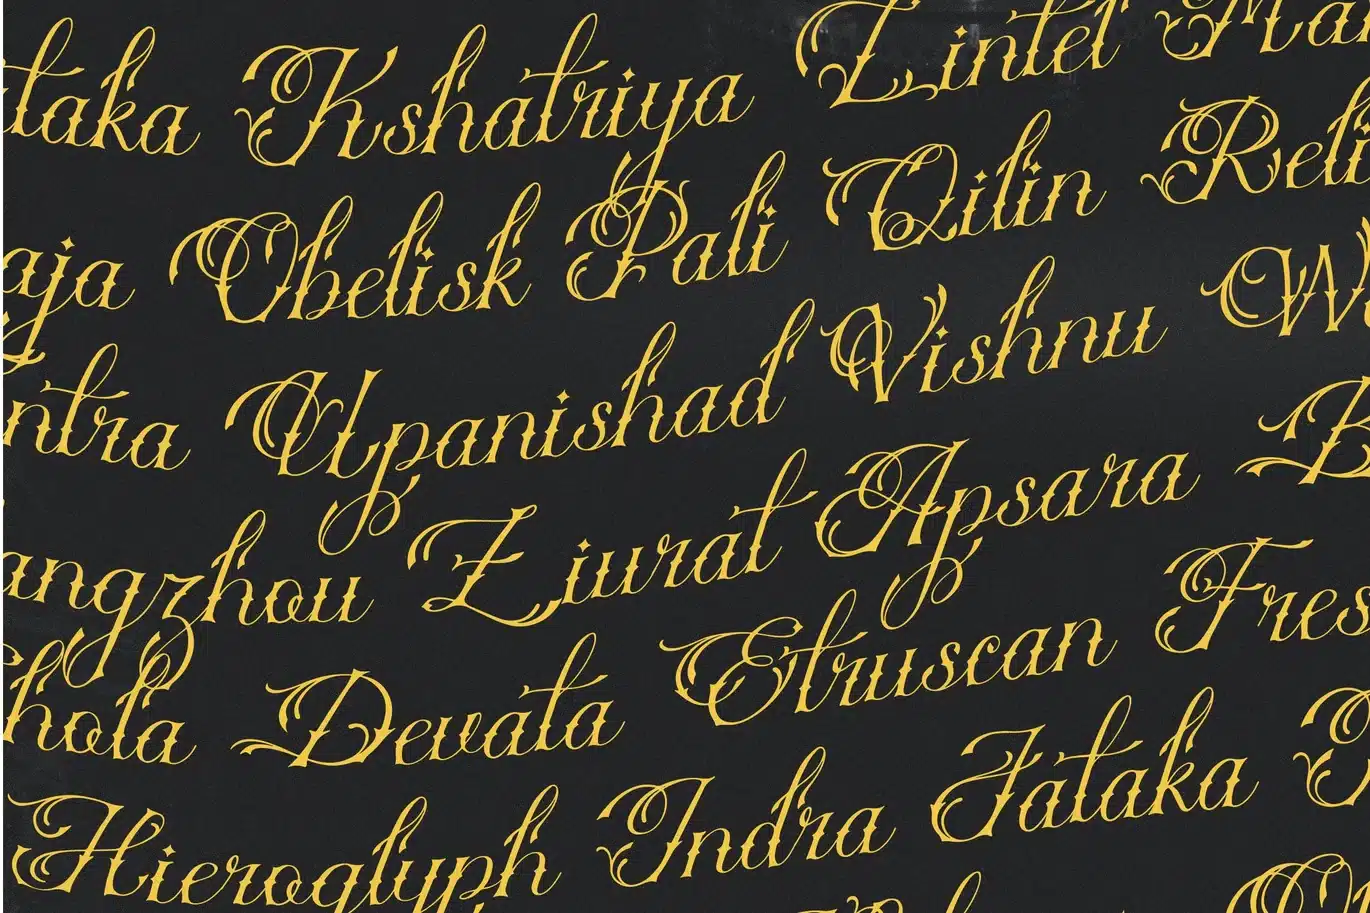 taka Kshatriya Lintel Ma
aja Obelisk Pali Qilin Reli
ntra Upanishad Vishnu W
angzhou Ziurat Apsara B
hola Devata Etruscan Fres
Hieroglyph Indra Jataka